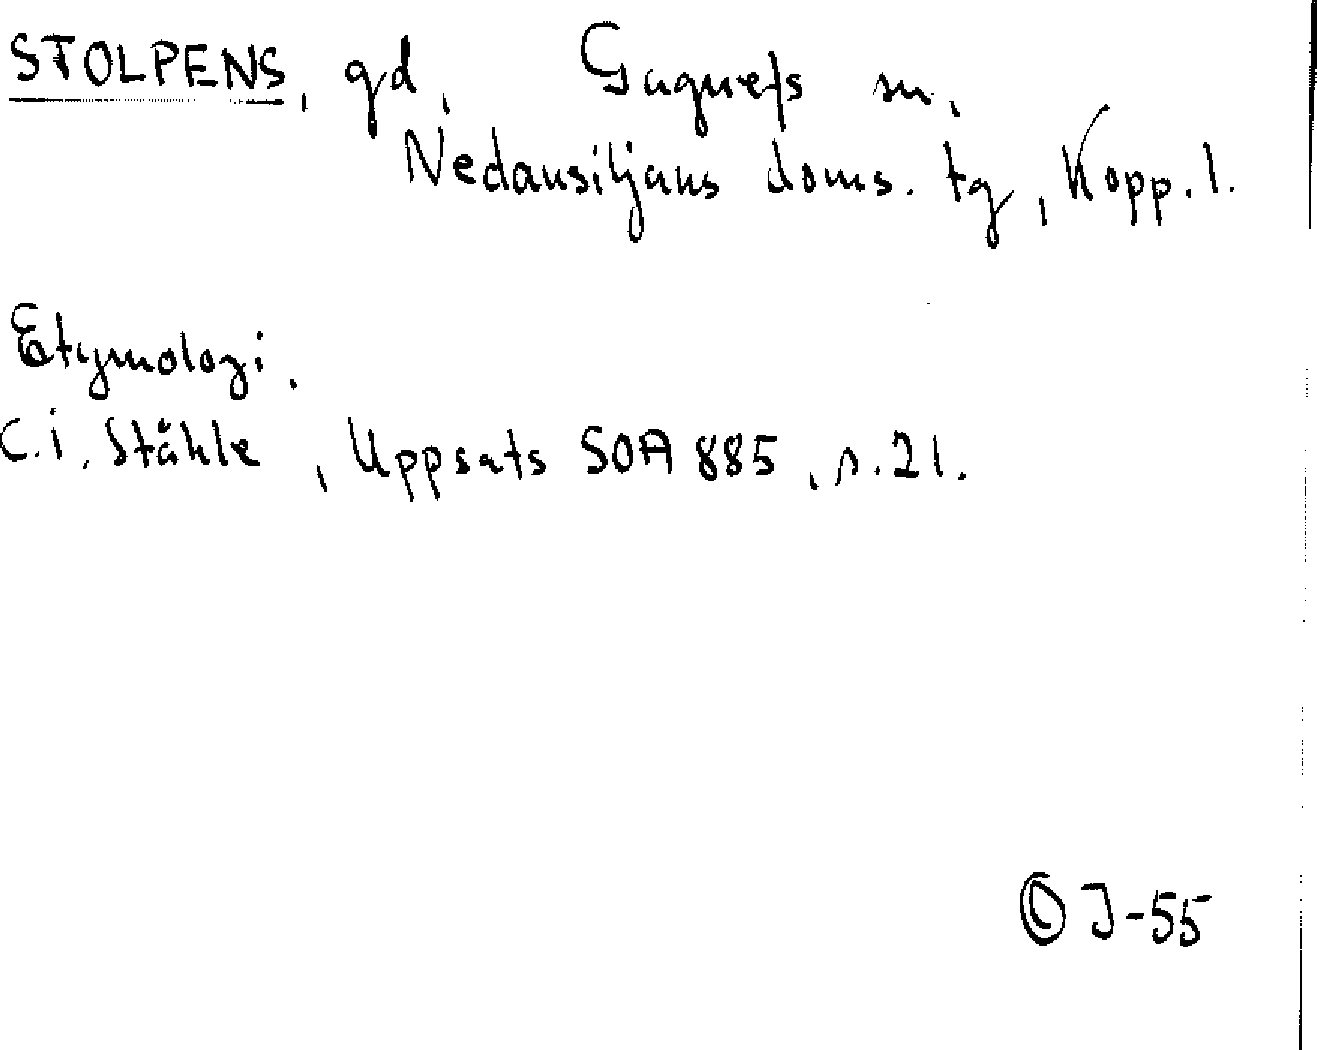 STOLPENS, gd, Gagnefs sn,
Nedansiljans doms. tg, Kopp. l.
Etymologi.
C.i. Ståhle, Uppsats SOA 885, s. 21.
© J-55